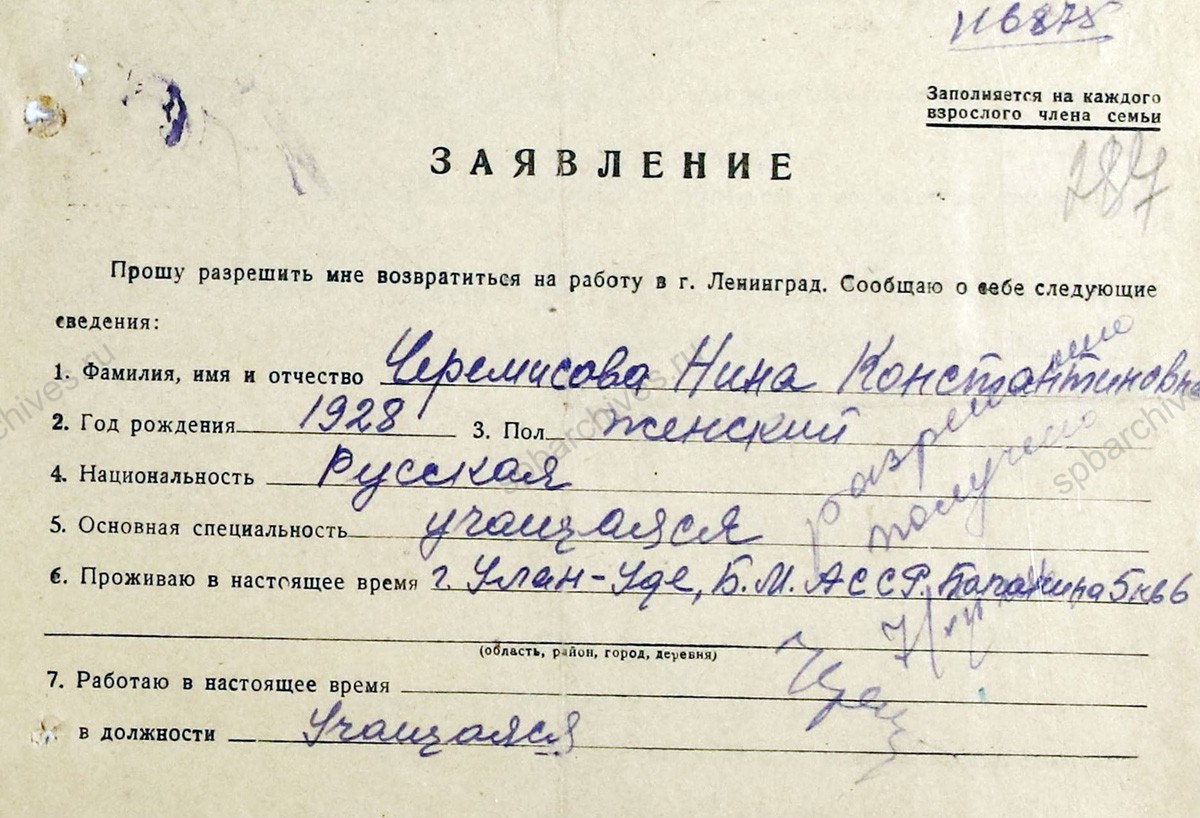 116875
Заполняется на каждого
взрослого члена семьи
287
ЗАЯВЛЕНИЕ
Прошу разрешить мне возвратиться на работу в г. Ленинград. Сообщаю о себе следующие
сведения:
1. Фамилия, имя и отчество Черемисова Нина Константиновна
2. Год рождения 1928 3. Пол женский
4. Национальность Русская
5. Основная специальность учащаяся
6. Проживаю в настоящее время г. Улан-Уде, Б.М. АССР. 5 кв 6
(область, район, город, деревня)
7. Работаю в настоящее время
в должности Учащаяся
разрешение
получено
spbarchives.ru
spbarchives.ru
spbarchives